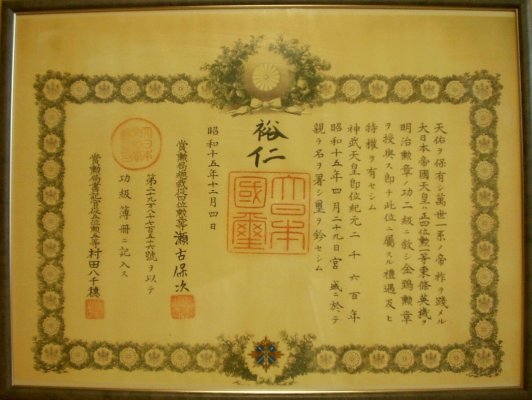 天佑ヲ保有シ萬世一系ノ帝祚ヲ踐メル
大日本帝國天皇ハ正四位勲一等東條英機ヲ
明治勲章ノ功二級ニ敍シ金鵄勲章
ヲ授與ス即チ此位ニ屬スル禮遇及ヒ
特權ヲ有セシム
神武天皇即位紀元二千六百年
昭和十五年四月二十九日宮城ニ於テ
親ラ名ヲ署シ璽ヲ鈐セシム
裕仁
大日本國璽
昭和十五年十二月四日
賞勲局總裁 瀬古保次
號ヲ以テ
功級簿冊ニ記入ス
賞勲局書記官 村田八千穂